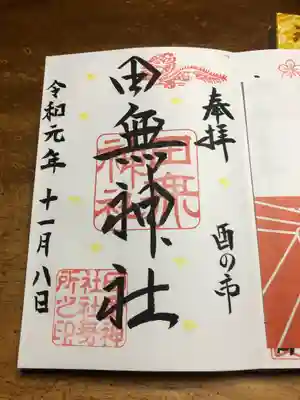 奉拝
酉の市
田無神社
田無神社
令和元年十一月八日
田無神社社務所之印